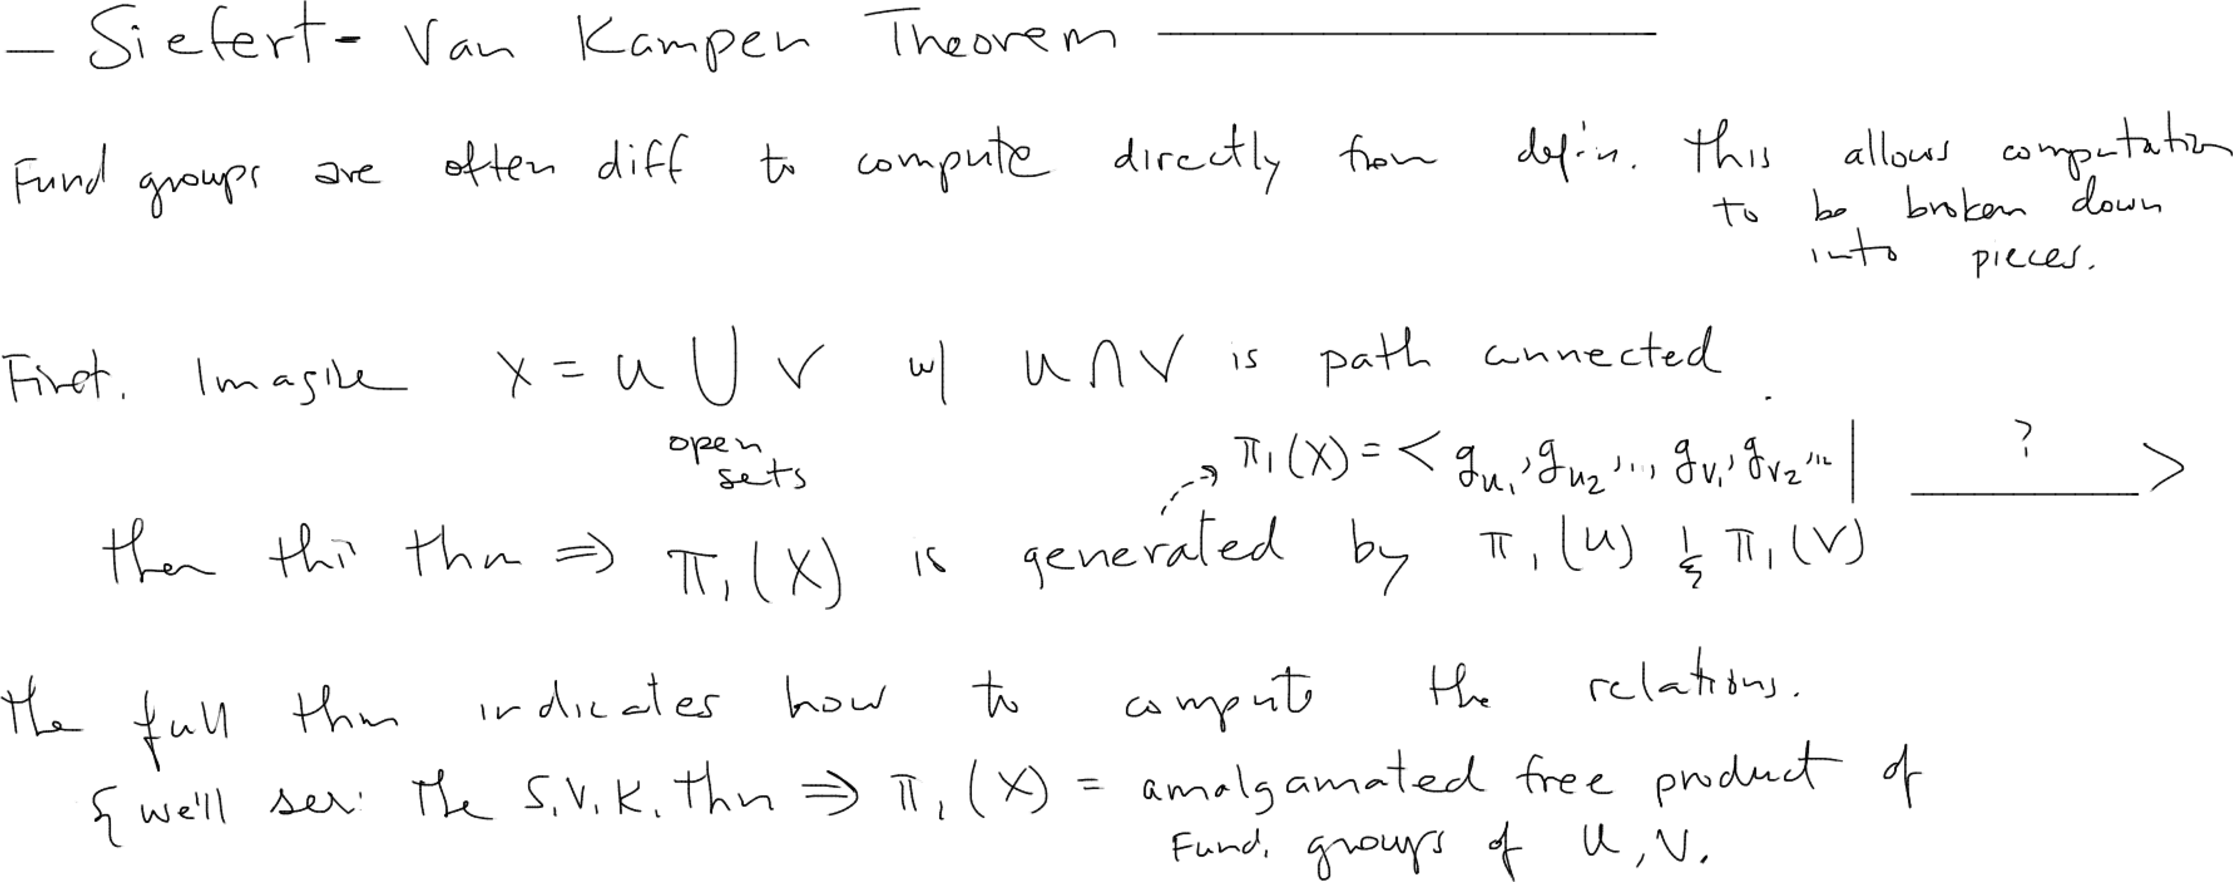 — Siefert - Van Kampen Theorem —
Fund groups are often diff to compute directly from def'n. This allows computation
to be broken down
into pieces.
First. Imagine X = U ⋃ V w/ U ∩ V is path connected.
open
sets
π₁(X) = < g_{u₁}, g_{u₂}, ..., g_{v₁}, g_{v₂}, ... | ? >
then this thm ⇒ π₁(X) is generated by π₁(U) & π₁(V)
The full thm indicates how to compute the relations.
{ we'll see: The S.V.K. thm ⇒ π₁(X) = amalgamated free product of
Fund. groups of U, V.